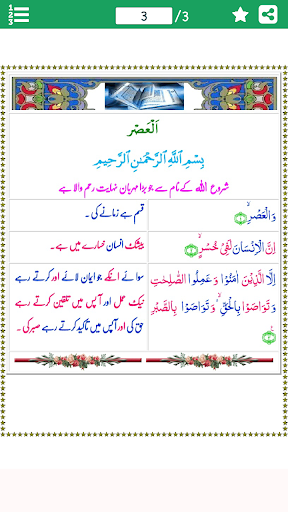 1
2
3
3 /3
اَلْعَصْر
بِسْمِ اللَّهِ الرَّحْمٰنِ الرَّحِيمِ
شروع اللہ کے نام سے جو بڑا مہربان نہایت رحم والا ہے
وَالْعَصْرِۙ
قسم ہے زمانے کی ۔
اِنَّ الْاِنْسَانَ لَفِیْ خُسْرٍۙ
بیشک انسان خسارے میں ہے ۔
اِلَّا الَّذِیْنَ اٰمَنُوْا وَ عَمِلُوا الصّٰلِحٰتِ
وَ تَوَاصَوْا بِالْحَقِّ ۙ۬ وَ تَوَاصَوْا بِالصَّبْرِ
سوائے انکے جو ایمان لائے اور کرتے رہے
نیک عمل اور آپس میں تلقین کرتے رہے
حق کی اور آپس میں تاکید کرتے رہے صبر کی ۔